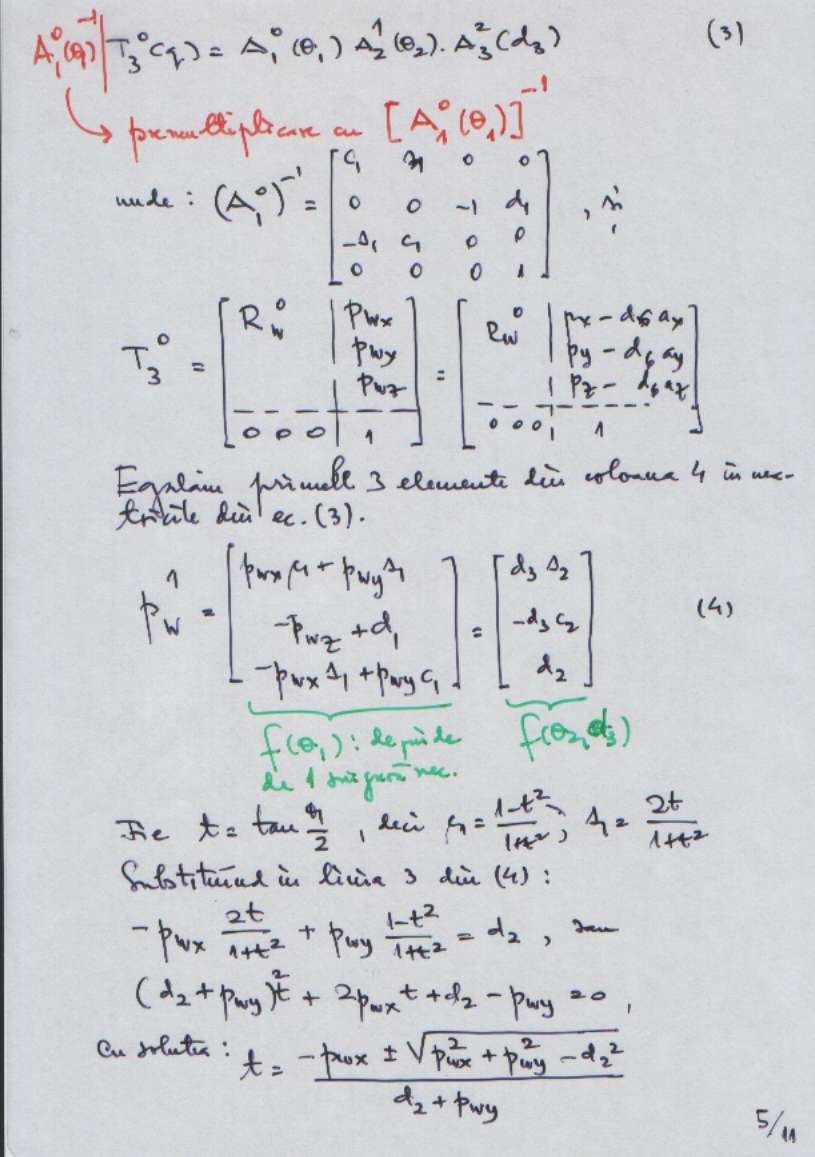 A₁⁰(θ₁)⁻¹ | T₃⁰(q) = A₁⁰(θ₁) A₂¹(θ₂). A₃²(d₃) (3)
premultiplicare cu [A₁⁰(θ₁)]⁻¹
unde : (A₁⁰)⁻¹ = [c₁ s₁ 0 0
0 0 -1 d₁
-s₁ c₁ 0 0
0 0 0 1] , și
T₃⁰ = [R_w⁰ | p_wx = [R_w⁰ | p_x - d₆ a_x
p_wx | p_y - d₆ a_y
p_wz | p_z - d₆ a_z
0 0 0 | 1] 0 0 0 | 1]
Egalăm primele 3 elemente din coloana 4 în ma-
tricile din ec. (3).
p_w¹ = [p_wx c₁ + p_wy s₁ = [d₃ s₂
-p_wz + d₁ -d₃ c₂ (4)
-p_wx s₁ + p_wy c₁] d₂]
f(θ₁) : depinde f(θ₂, d₃)
de 1 singură nec.
Fie t = tan θ₁/2 , deci c₁ = (1-t²)/(1+t²) ; s₁ = 2t/(1+t²)
Substituind în linia 3 din (4) :
-p_wx 2t/(1+t²) + p_wy (1-t²)/(1+t²) = d₂ , sau
(d₂ + p_wy)t² + 2p_wx t + d₂ - p_wy = 0 ,
cu soluția : t = (-p_wx ± √(p_wx² + p_wy² - d₂²))/(d₂ + p_wy)
5/11